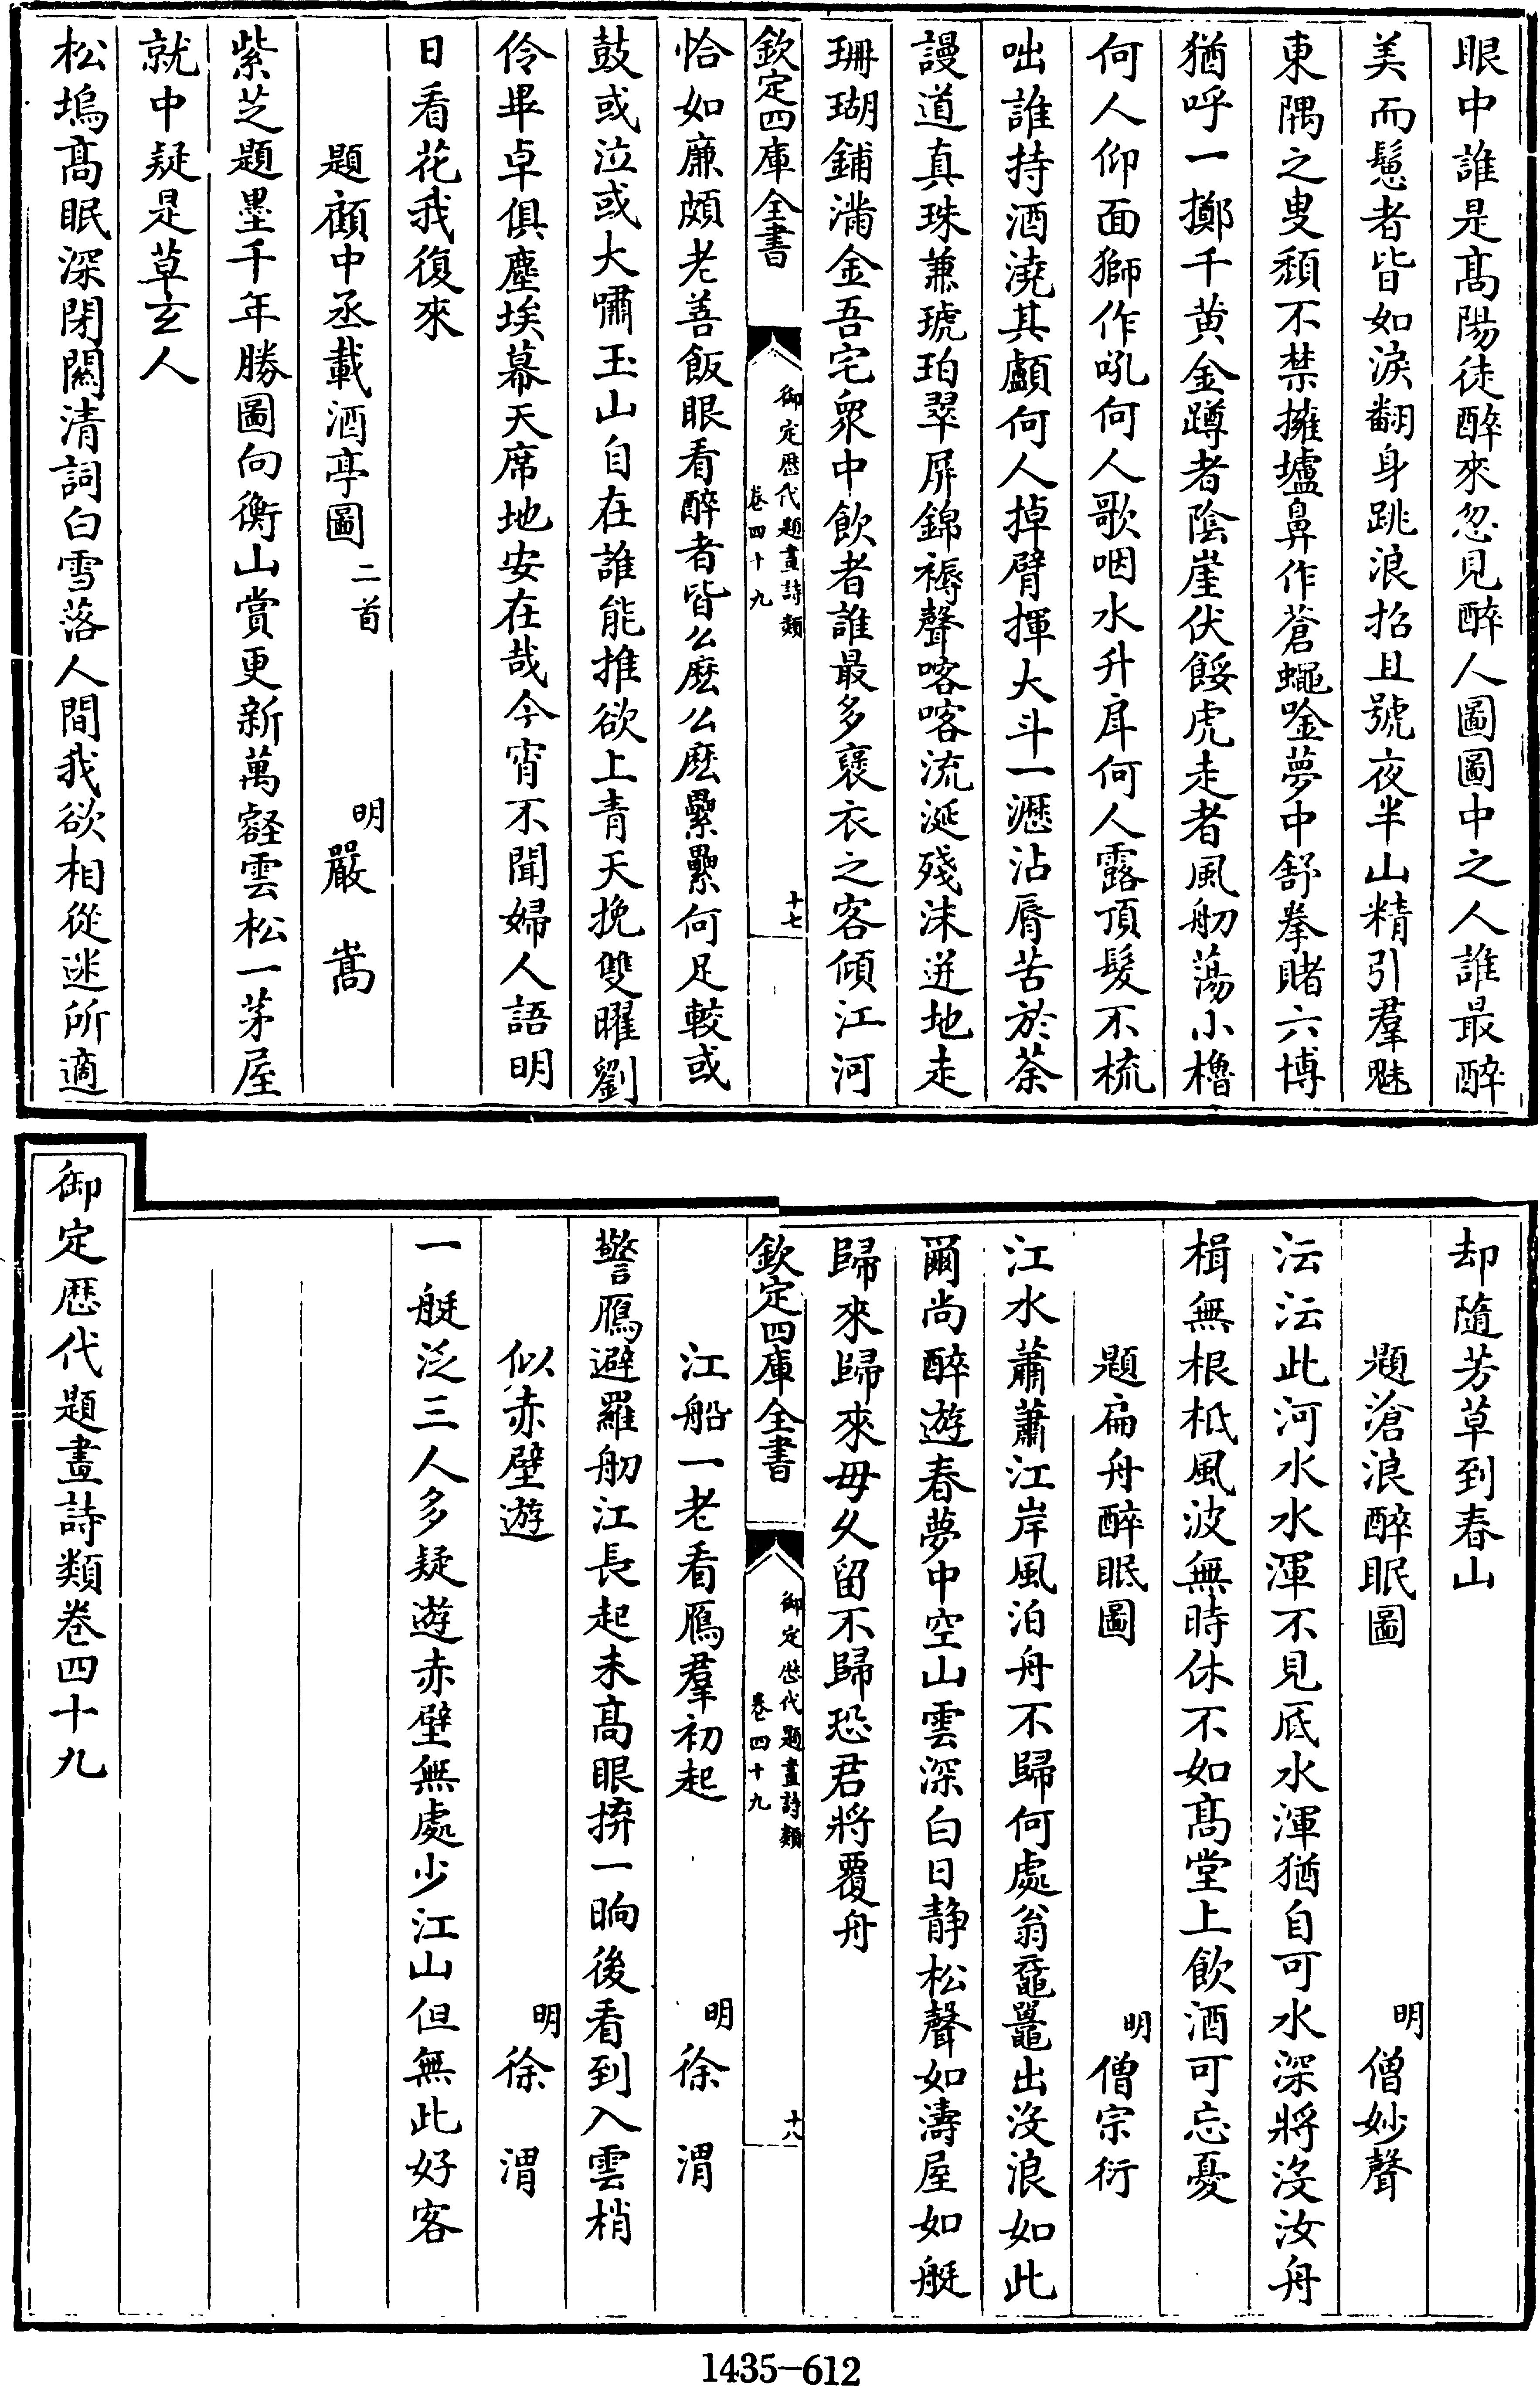 眼中誰是髙陽徒醉來忽見醉人圖圖中之人誰最醉
美而鬈者皆如淚翻身跳浪招且號夜半山精引羣魅
東隅之叟頽不禁擁壚鼻作蒼蠅唫夢中舒拳賭六博
猶呼一擲千黄金蹲者陰崖伏餒虎走者風舠蕩小櫓
何人仰面獅作吼何人歌咽水升戽何人露頂髮不梳
咄誰持酒澆其顱何人掉臂揮大斗一瀝沾脣苦於荼
謾道真珠兼琥珀翠屏錦褥聲喀喀流涎殘沫迸地走
珊瑚鋪滿金吾宅衆中飲者誰最多褒衣之客傾江河
欽定四庫全書
御定歴代題畫詩類
卷四十九
十七
恰如廉頗老善飯眼看醉者皆么麽么麽纍纍何足較或
鼓或泣或大嘯玉山自在誰能推欲上青天挽雙曜劉
伶畢卓俱塵埃幕天席地安在哉今宵不聞婦人語明
日看花我復來
題顧中丞載酒亭圖二首 明嚴嵩
紫芝題墨千年勝圖向衡山賞更新萬壑雲松一茅屋
就中疑是草玄人
松塢髙眠深閉闗清詞白雪落人間我欲相從迷所適
却隨芳草到春山
題滄浪醉眠圖 明僧妙聲
沄沄此河水水渾不見底水渾猶自可水深將沒汝舟
楫無根柢風波無時休不如髙堂上飲酒可忘憂
題扁舟醉眠圖 明僧宗衍
江水蕭蕭江岸風泊舟不歸何處翁黿鼉出沒浪如此
爾尚醉遊春夢中空山雲深白日静松聲如濤屋如艇
歸來歸來毋乆留不歸恐君將覆舟
欽定四庫全書
御定歴代題畫詩類
卷四十九
十八
江船一老看鴈羣初起 明徐渭
警鴈避羅舠江長起未髙眼拚一晌後看到入雲梢
似赤壁遊 明徐渭
一艇泛三人多疑遊赤壁無處少江山但無此好客
御定歴代題畫詩類卷四十九
1435-612